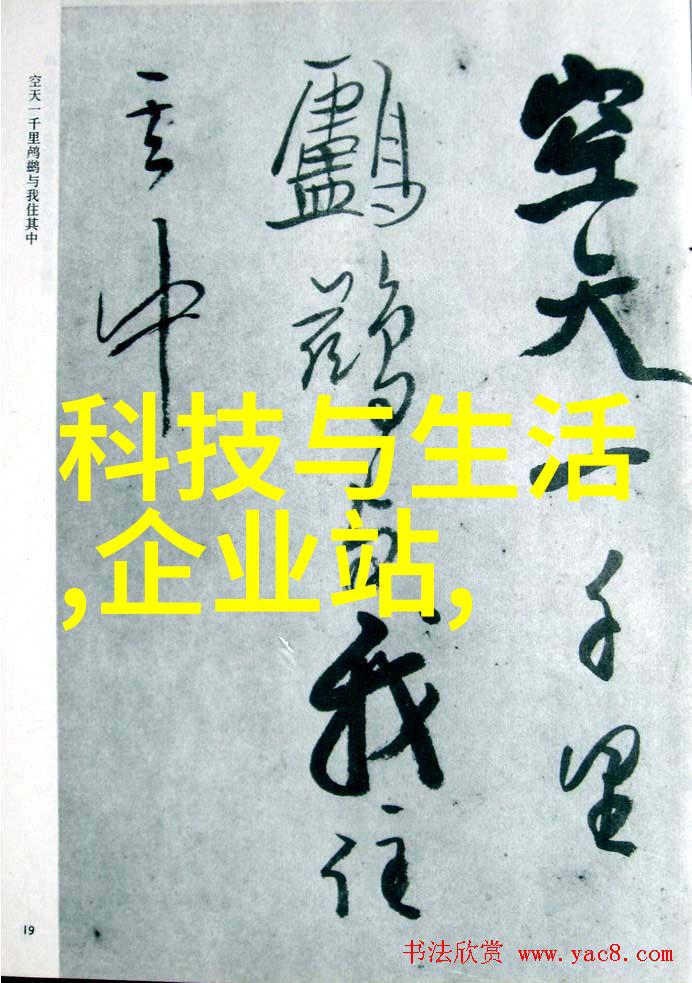 空天一千里
鸕鷀與我住
其中
空天一千里鸬鹚与我住其中
科技与生活
,企业站,
19
书法欣赏 www.yac8.com